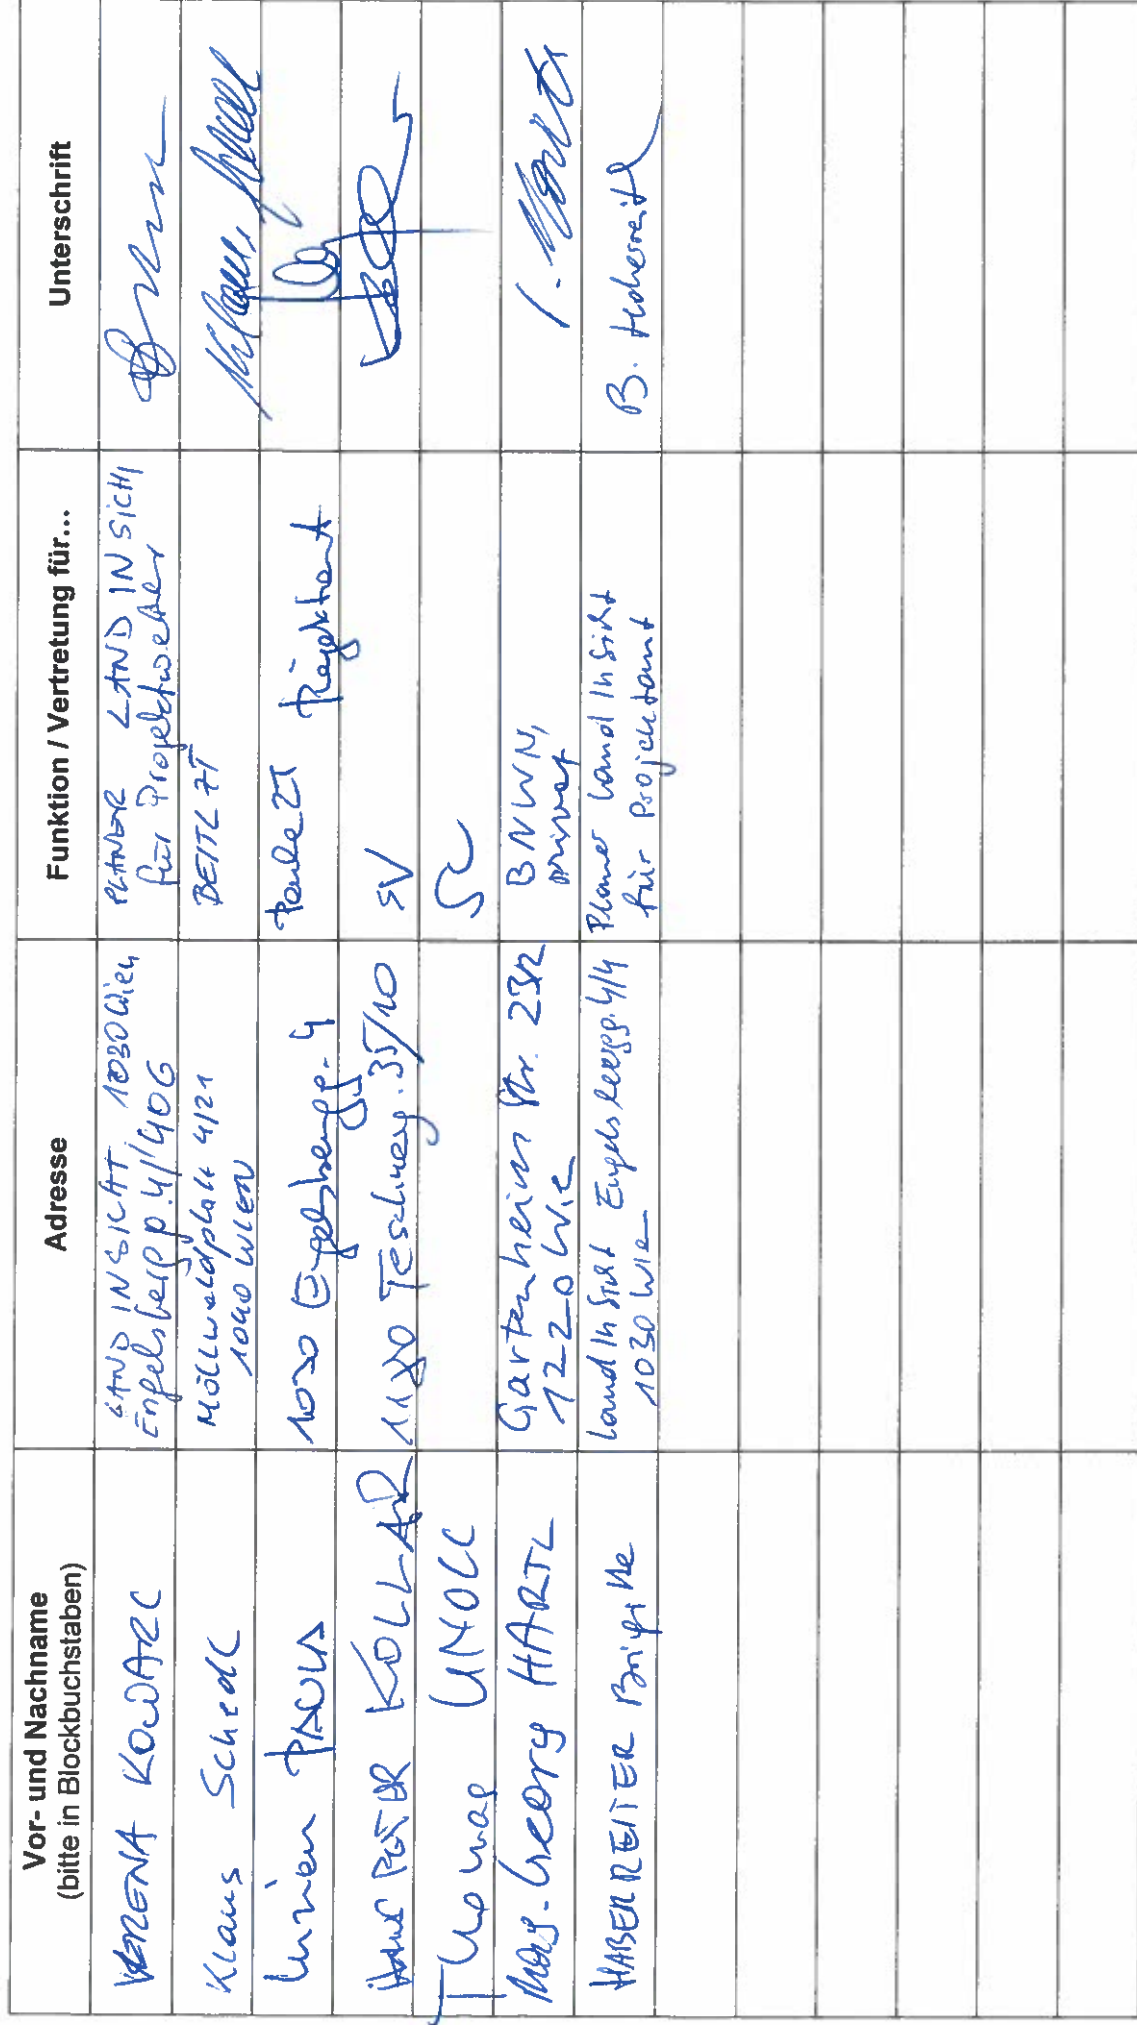 Vor- und Nachname
(bitte in Blockbuchstaben)
Adresse
Funktion / Vertretung für...
Unterschrift
VERENA KOWARC
LAND IN SICHT, 1030 Wien
Engelsbergg. 4/406
PLANER LAND IN SICHT,
für Projektwerber
Klaus Schedl
Möllwaldplatz 4/21
1040 WIEN
BEITL ZT
PAULA
1030 Engelsbergg. 4
Projektant
PETER KOLLAR
1180 Teschnerg. 35/10
SV
Thomas KNOLL
Mag. Georg HARTL
Gartenheim Str. 23/2
1220 Wie
BNWN,
privat
HABERREITER Brigitte
Land in Sicht Engelsbergg. 4/4
1030 Wie
Planer Land in Sicht
für Projektant
B. Haberreiter